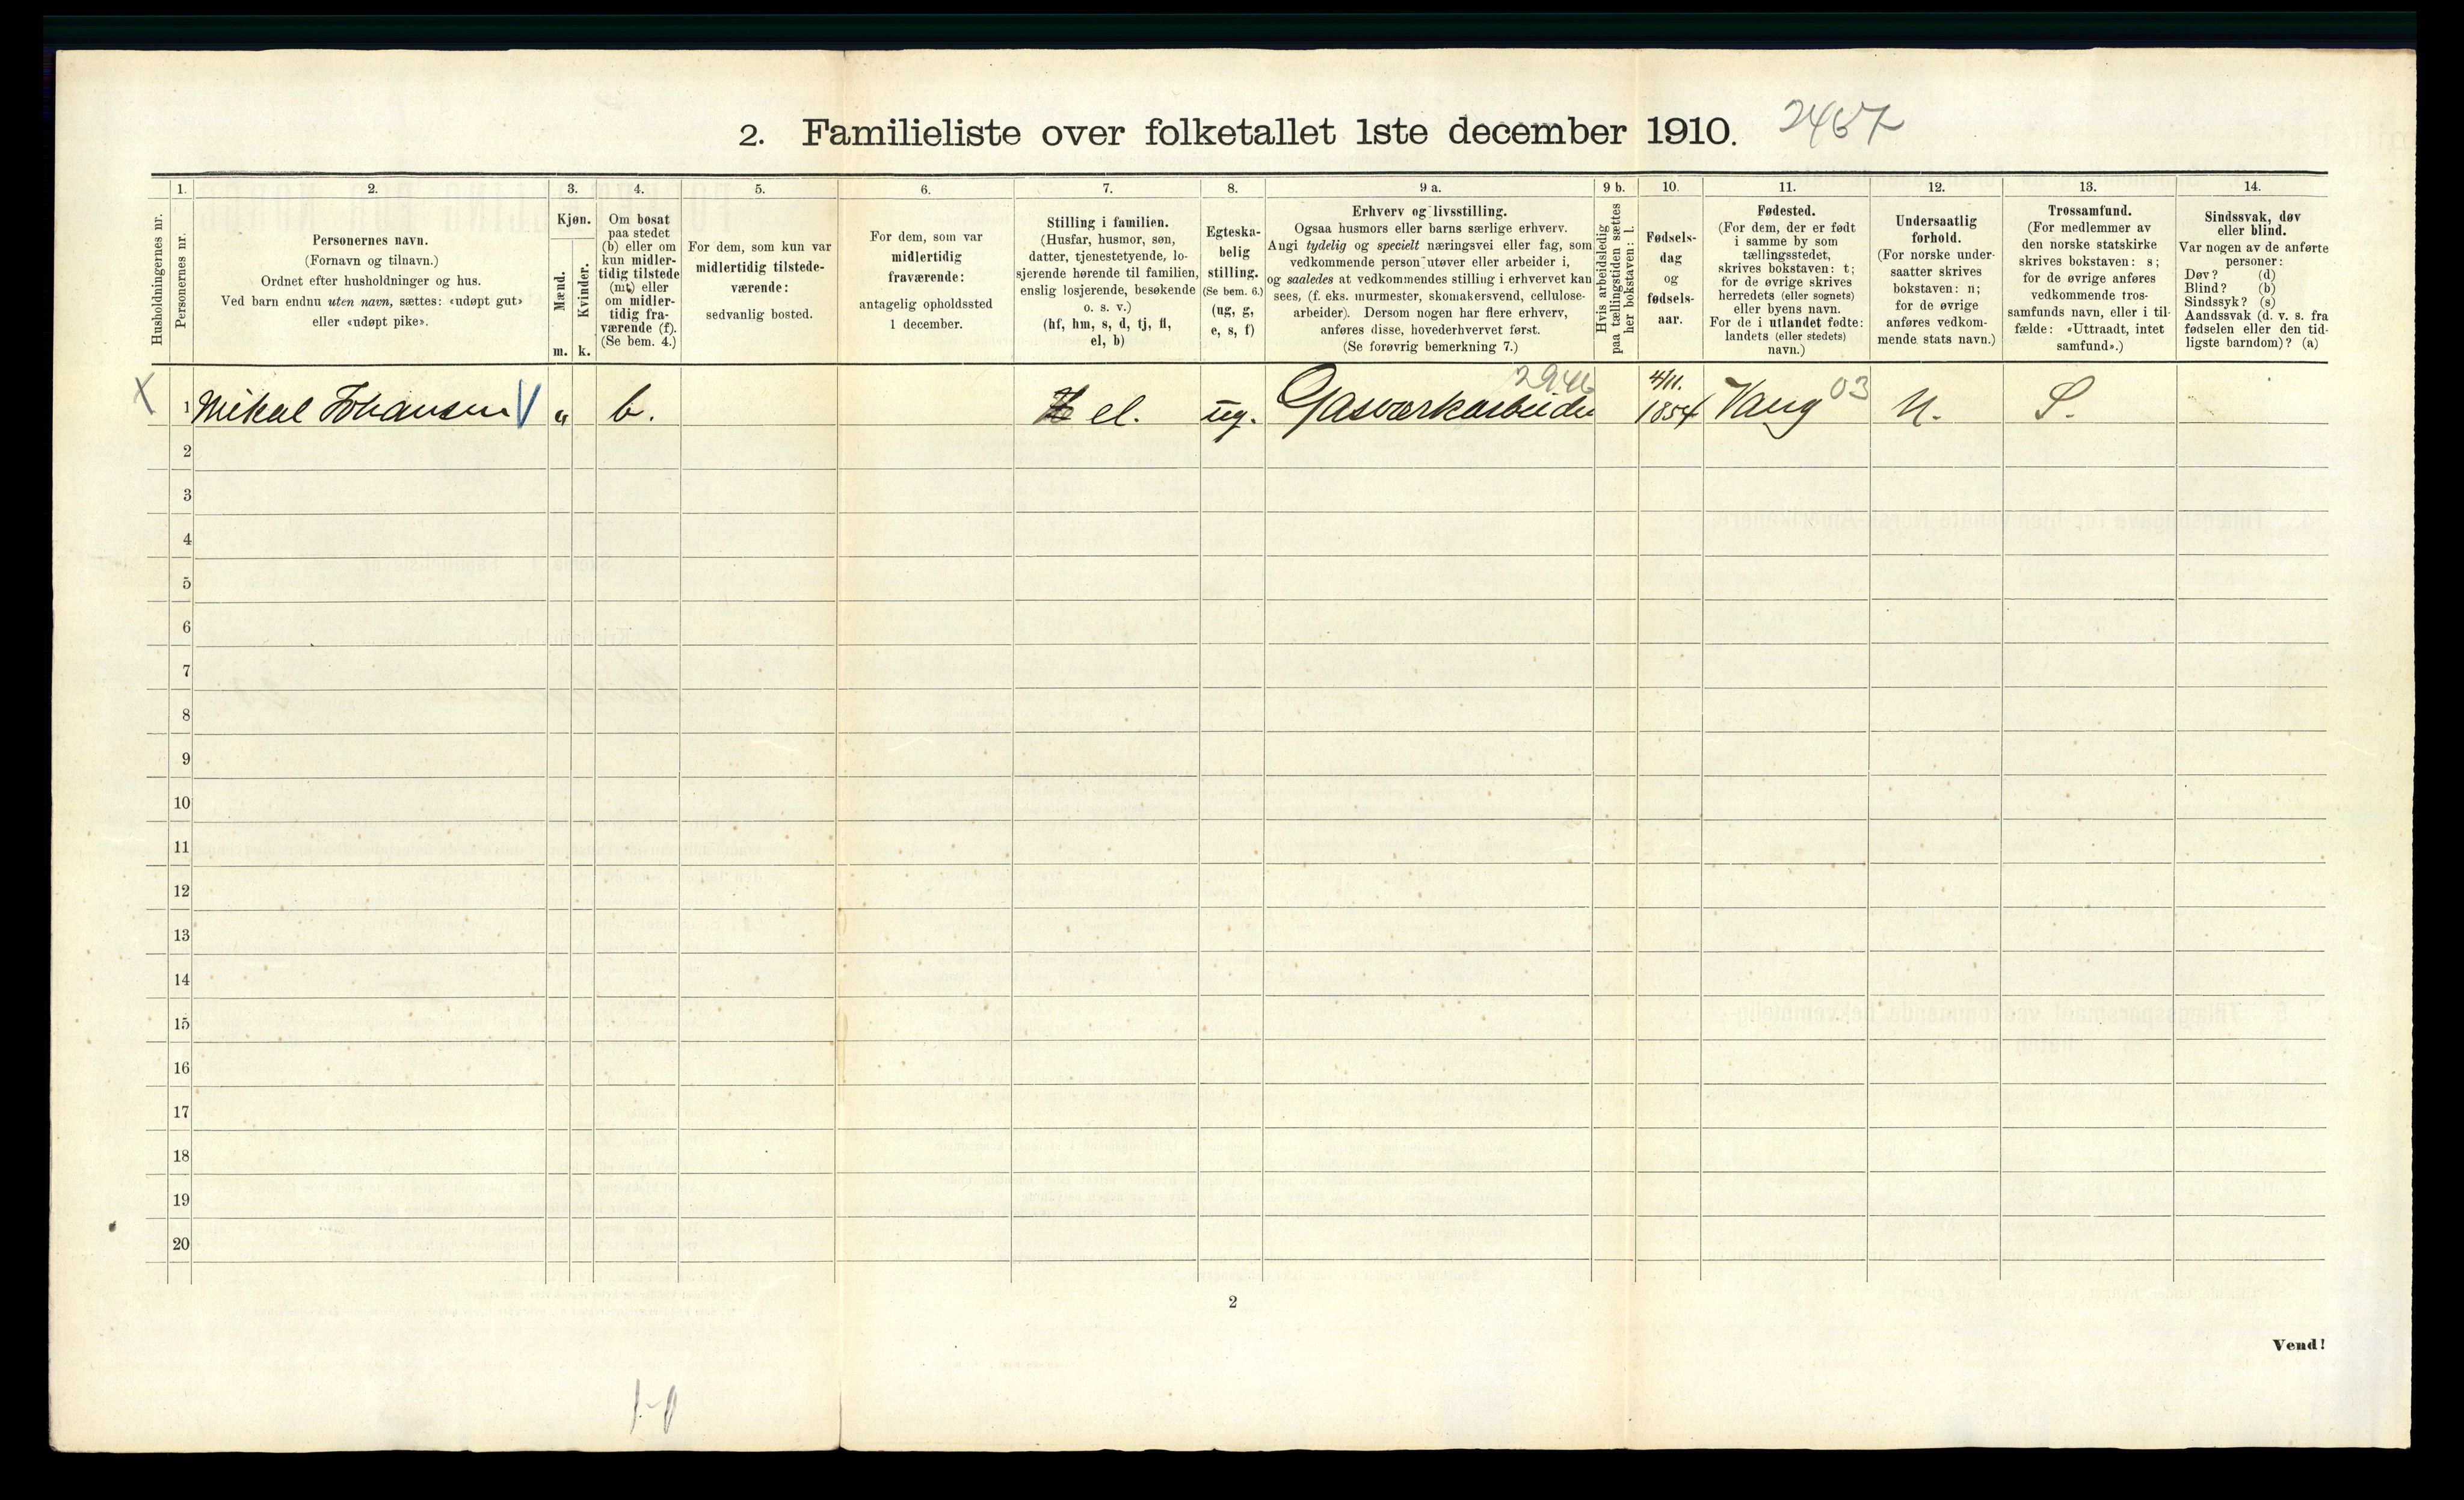 2. Familieliste over folketallet 1ste december 1910.
1. 2. 3. 4. 5. 6. 7. 8. 9 a. 9 b. 10. 11. 12. 13. 14.
Husholdningernes nr.
Personernes nr.
Personernes navn.
(Fornavn og tilnavn.)
Ordnet efter husholdninger og hus.
Ved barn endnu uten navn, sættes: «udøpt gut»
eller «udøpt pike».
Kjøn.
Mænd.
Kvinder.
m. k.
Om bosat
paa stedet
(b) eller om
kun midler-
tidig tilstede
(mt) eller
om midler-
tidig fra-
værende (f).
(Se bem. 4.)
For dem, som kun var
midlertidig tilstede-
værende:
sedvanlig bosted.
For dem, som var
midlertidig
fraværende:
antagelig opholdssted
1 december.
Stilling i familien.
(Husfar, husmor, søn,
datter, tjenestetyende, lo-
sjerende hørende til familien,
enslig losjerende, besøkende
o. s. v.)
(hf, hm, s, d, tj, fl,
el, b)
Egteska-
belig
stilling.
(Se bem. 6.)
(ug, g,
e, s, f)
Erhverv og livsstilling.
Ogsaa husmors eller barns særlige erhverv.
Angi tydelig og specielt næringsvei eller fag, som
vedkommende person utøver eller arbeider i,
og saaledes at vedkommendes stilling i erhvervet kan
sees, (f. eks. murmester, skomakersvend, cellulose-
arbeider). Dersom nogen har flere erhverv,
anføres disse, hovederhvervet først.
(Se forøvrig bemerkning 7.)
Hvis arbeidsledig
paa tællingstiden sættes
her bokstaven: l.
Fødsels-
dag
og
fødsels-
aar.
Fødested.
(For dem, der er født
i samme by som
tællingsstedet,
skrives bokstaven: t;
for de øvrige skrives
herredets (eller sognets)
eller byens navn.
For de i utlandet fødte:
landets (eller stedets)
navn.)
Undersaatlig
forhold.
(For norske under-
saatter skrives
bokstaven: n;
for de øvrige
anføres vedkom-
mende stats navn.)
Trossamfund.
(For medlemmer av
den norske statskirke
skrives bokstaven: s;
for de øvrige anføres
vedkommende tros-
samfunds navn, eller i til-
fælde: «Uttraadt, intet
samfund».)
Sindssvak, døv
eller blind.
Var nogen av de anførte
personer:
Døv? (d)
Blind? (b)
Sindssyk? (s)
Aandssvak (d. v. s. fra
fødselen eller den tid-
ligste barndom)? (a)
X 1 Mikal Johansen „ b. el. ug. Gasværkarbeider 4/11. 1854 Vang 03 N. S.
2
3
4
5
6
7
8
9
10
11
12
13
14
15
16
17
18
19
20
2
Vend!
1-0